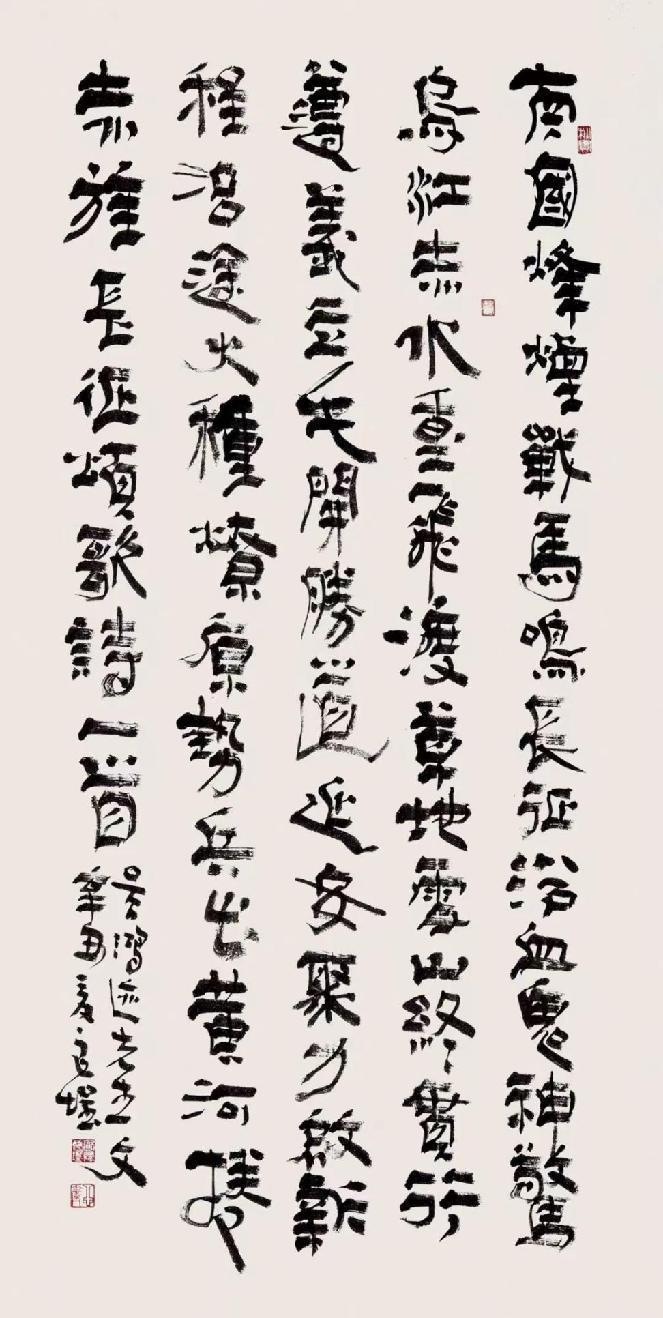 南國烽煙戰馬鳴長征浴血鬼神驚
烏江赤水重飛渡草地雪山終貫行
遵義立毛開勝道延安聚力啟新
程沿途火種燎原勢兵出黃河
赤旌長征頌歌詩一首
辛丑夏